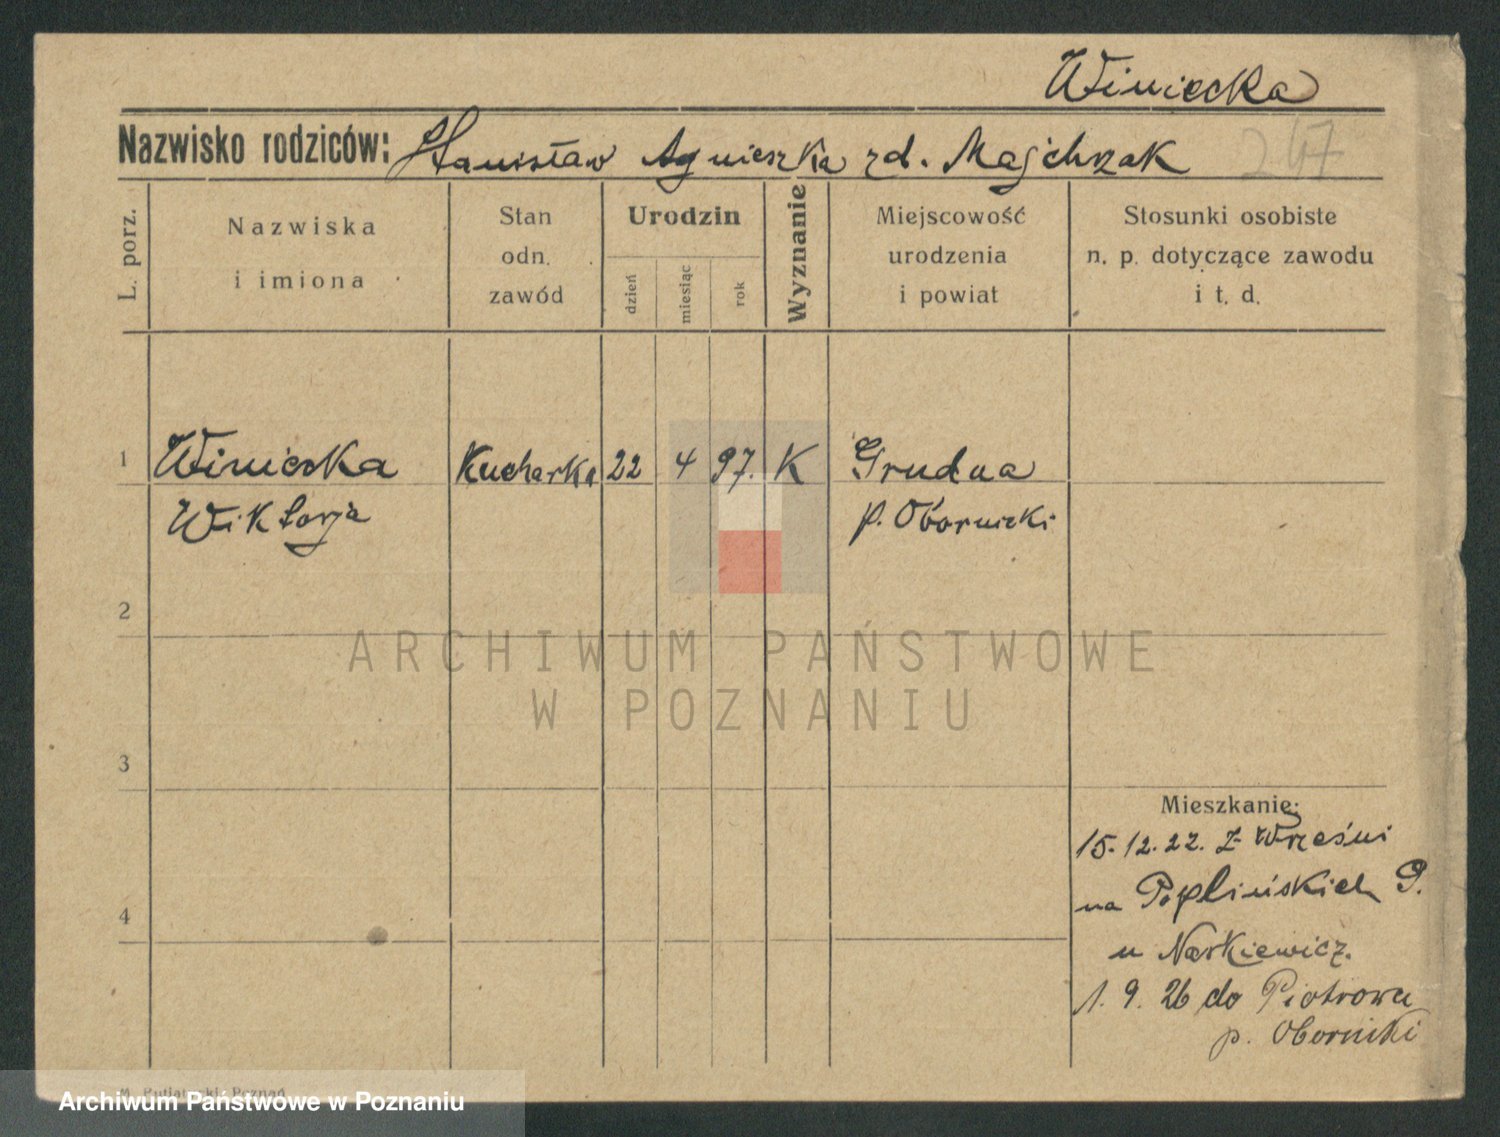 Winiecka
Nazwisko rodziców: Stanisław Agnieszka zd. Majchrzak 247
L. porz.
Nazwiska
i imiona
Stan
odn.
zawód
Urodzin
dzień
miesiąc
rok
Wyznanie
Miejscowość
urodzenia
i powiat
Stosunki osobiste
n. p. dotyczące zawodu
i t. d.
1 Winiecka Kucharka 22 4 97. K Grudna
Wiktorja p. Obornicki
2
ARCHIWUM PAŃSTWOWE
W POZNANIU
3
Mieszkanie:
15.12.22. z Wrześni
na Poplińskich 9.
u Narkiewicz.
4
1. 9. 26 do Piotrowa
p. Oborniki
Poznań
Archiwum Państwowe w Poznaniu